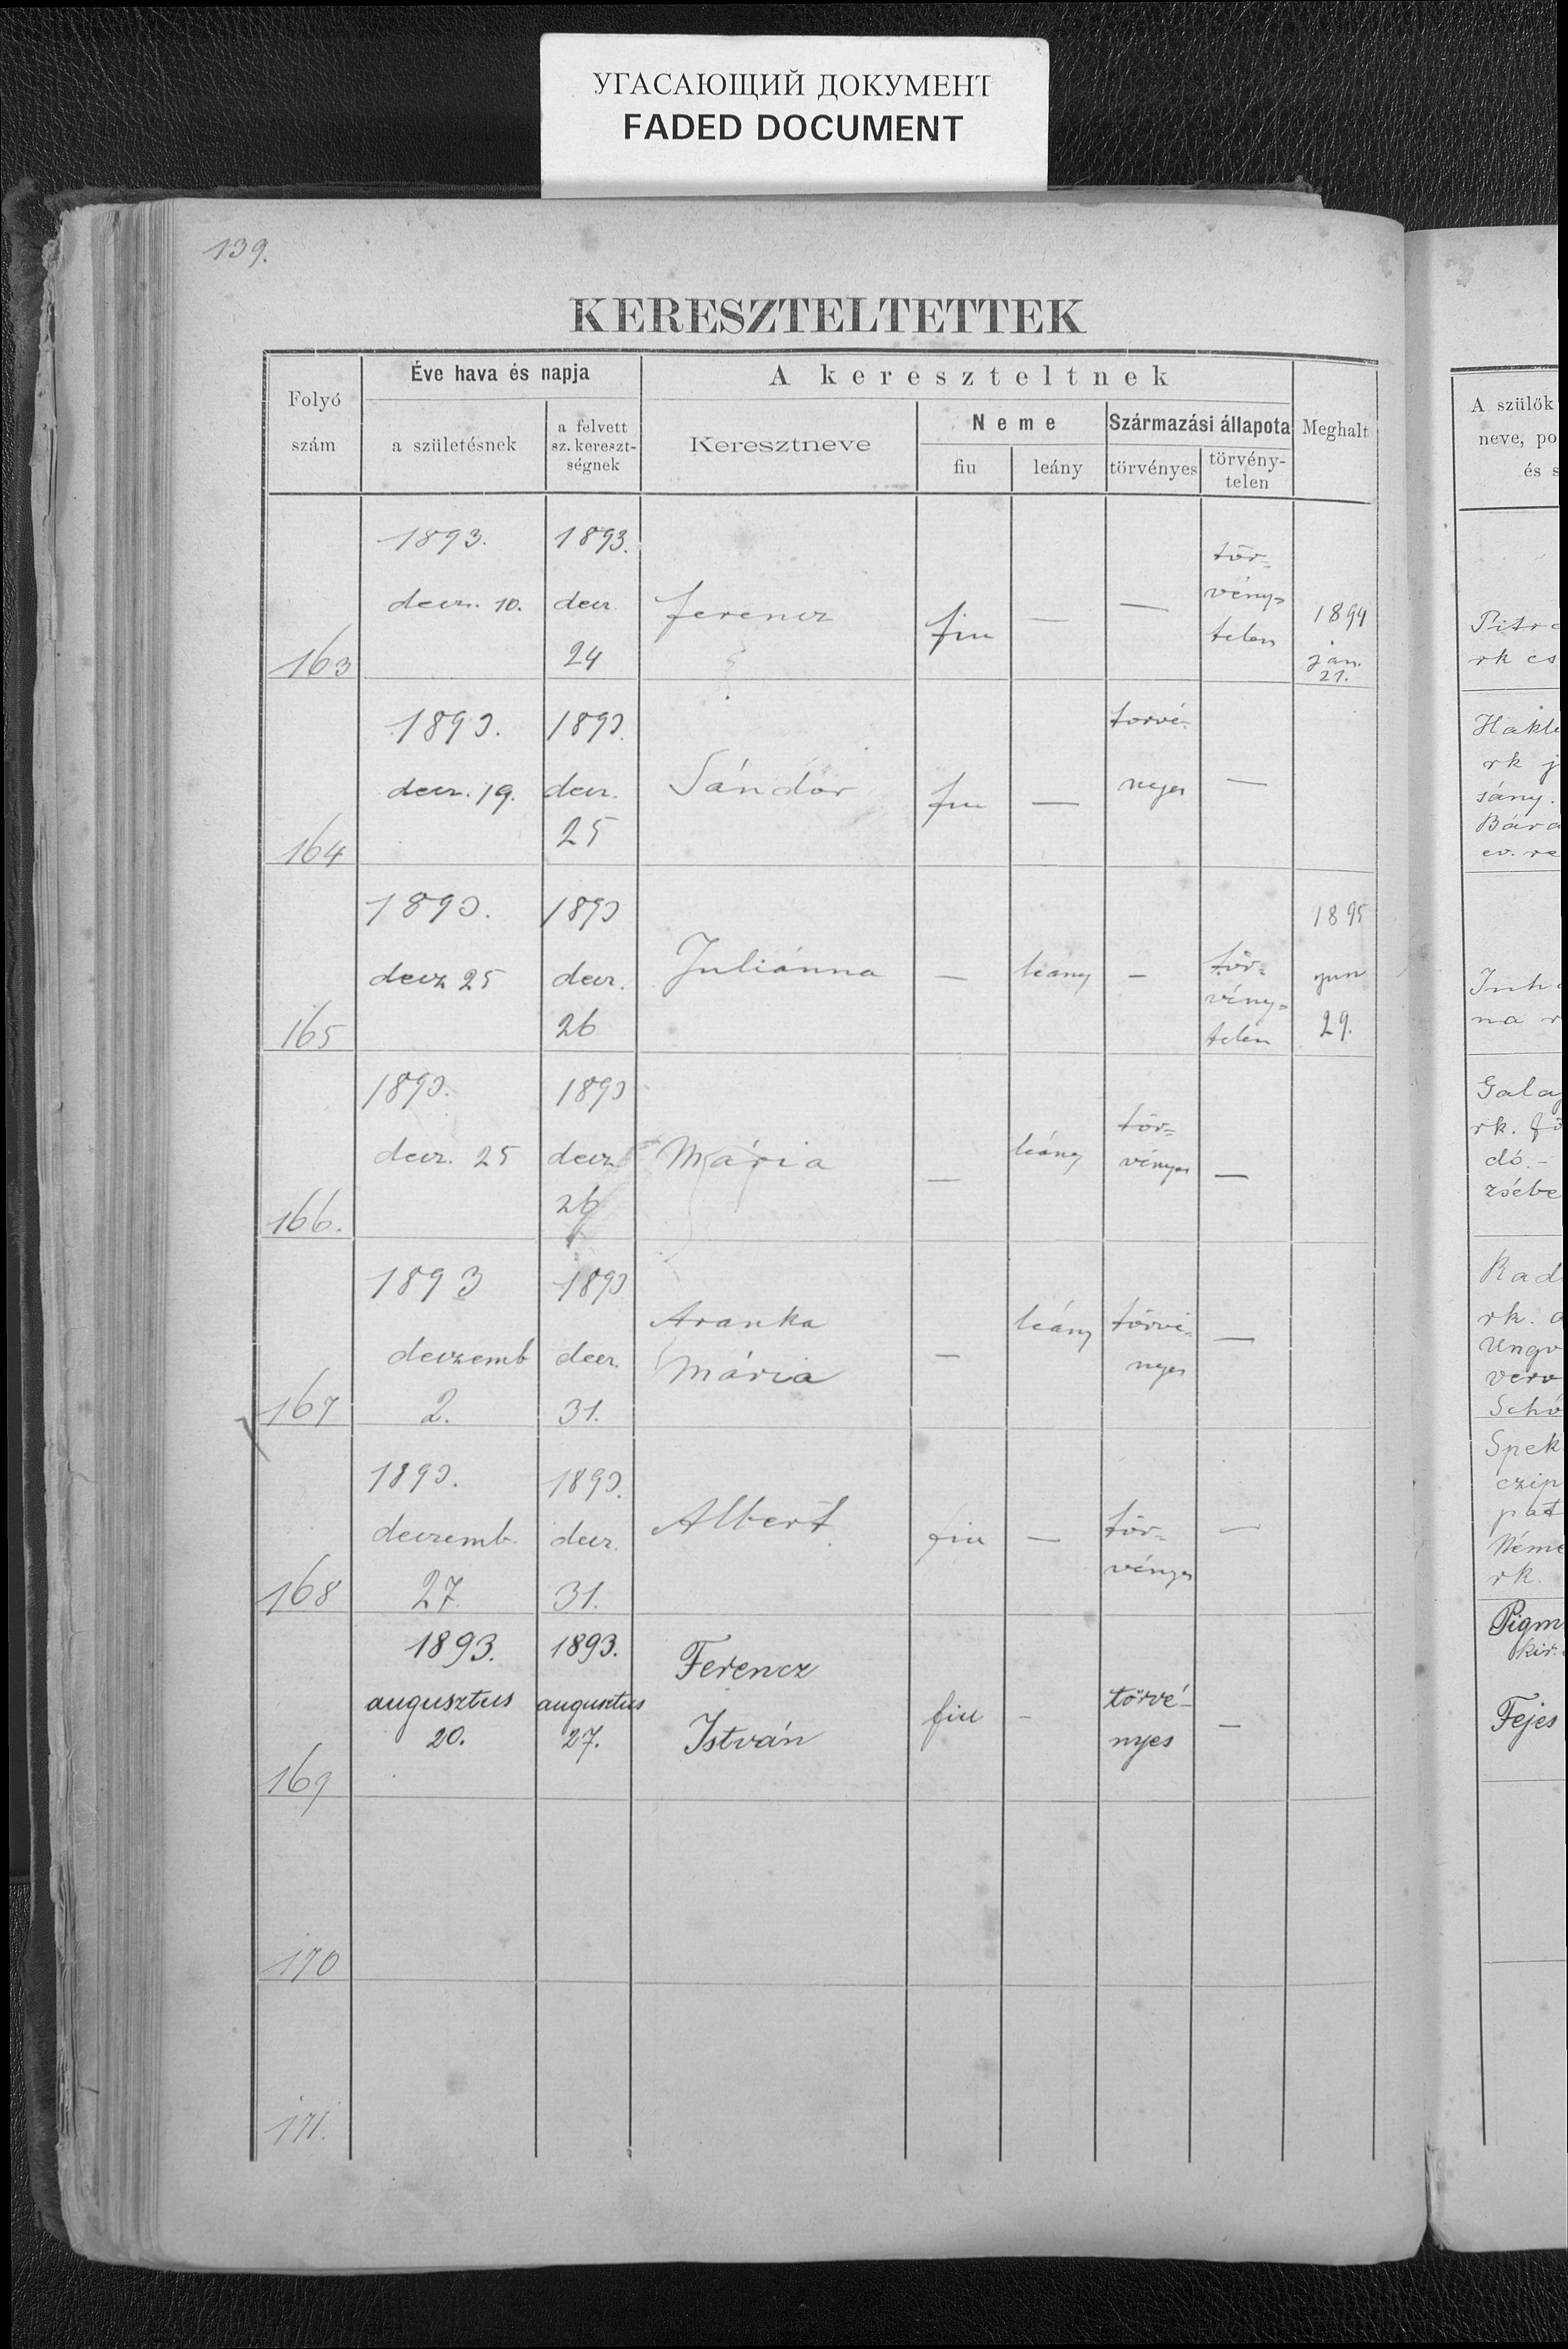 УГАСАЮЩИЙ ДОКУМЕНТ
FADED DOCUMENT
139.
KERESZTELTETTEK
Folyó szám
Éve hava és napja
a születésnek
a felvett sz. kereszt-ségnek
A kereszteltnek
Keresztneve
Neme
fiu
leány
Származási állapota
törvényes
törvény-telen
Meghalt
163
1893.
decz. 10.
1893.
decz.
24
Ferencz
fiu
—
—
tör=
vény=
telen
1894
jan.
21.
164
1893.
decz. 19.
1893.
decz.
25
Sándor
fiu
—
törvé-
nyes
—
165
1893.
decz 25
1893
decz.
26
Juliánna
—
leány
—
tör=
vény=
telen
1895
jun
29.
166.
1893.
decz. 25
1893
decz
26
Mária
—
leány
tör=
vényes
—
167
1893
deczemb
2.
1893
decz.
31.
Aranka
Mária
—
leány
törvé-
nyes
—
168
1893.
deczemb.
27.
1893.
decz.
31.
Albert
fiu
—
tör=
vényes
—
169
1893.
augusztus
20.
1893.
augusztus
27.
Ferencz
István
fiu
-
törvé-
nyes
—
170
171.
A szülők
neve, po
és s
rk cs
rk j
sány.
Bára
ev. re
na r
Gala
rk. fö
dó. -
zsébe
Rad
rk.
Ungv
Schö
Spek
czip
pat
Néme
rk.
Pigm
kir.
Fejes